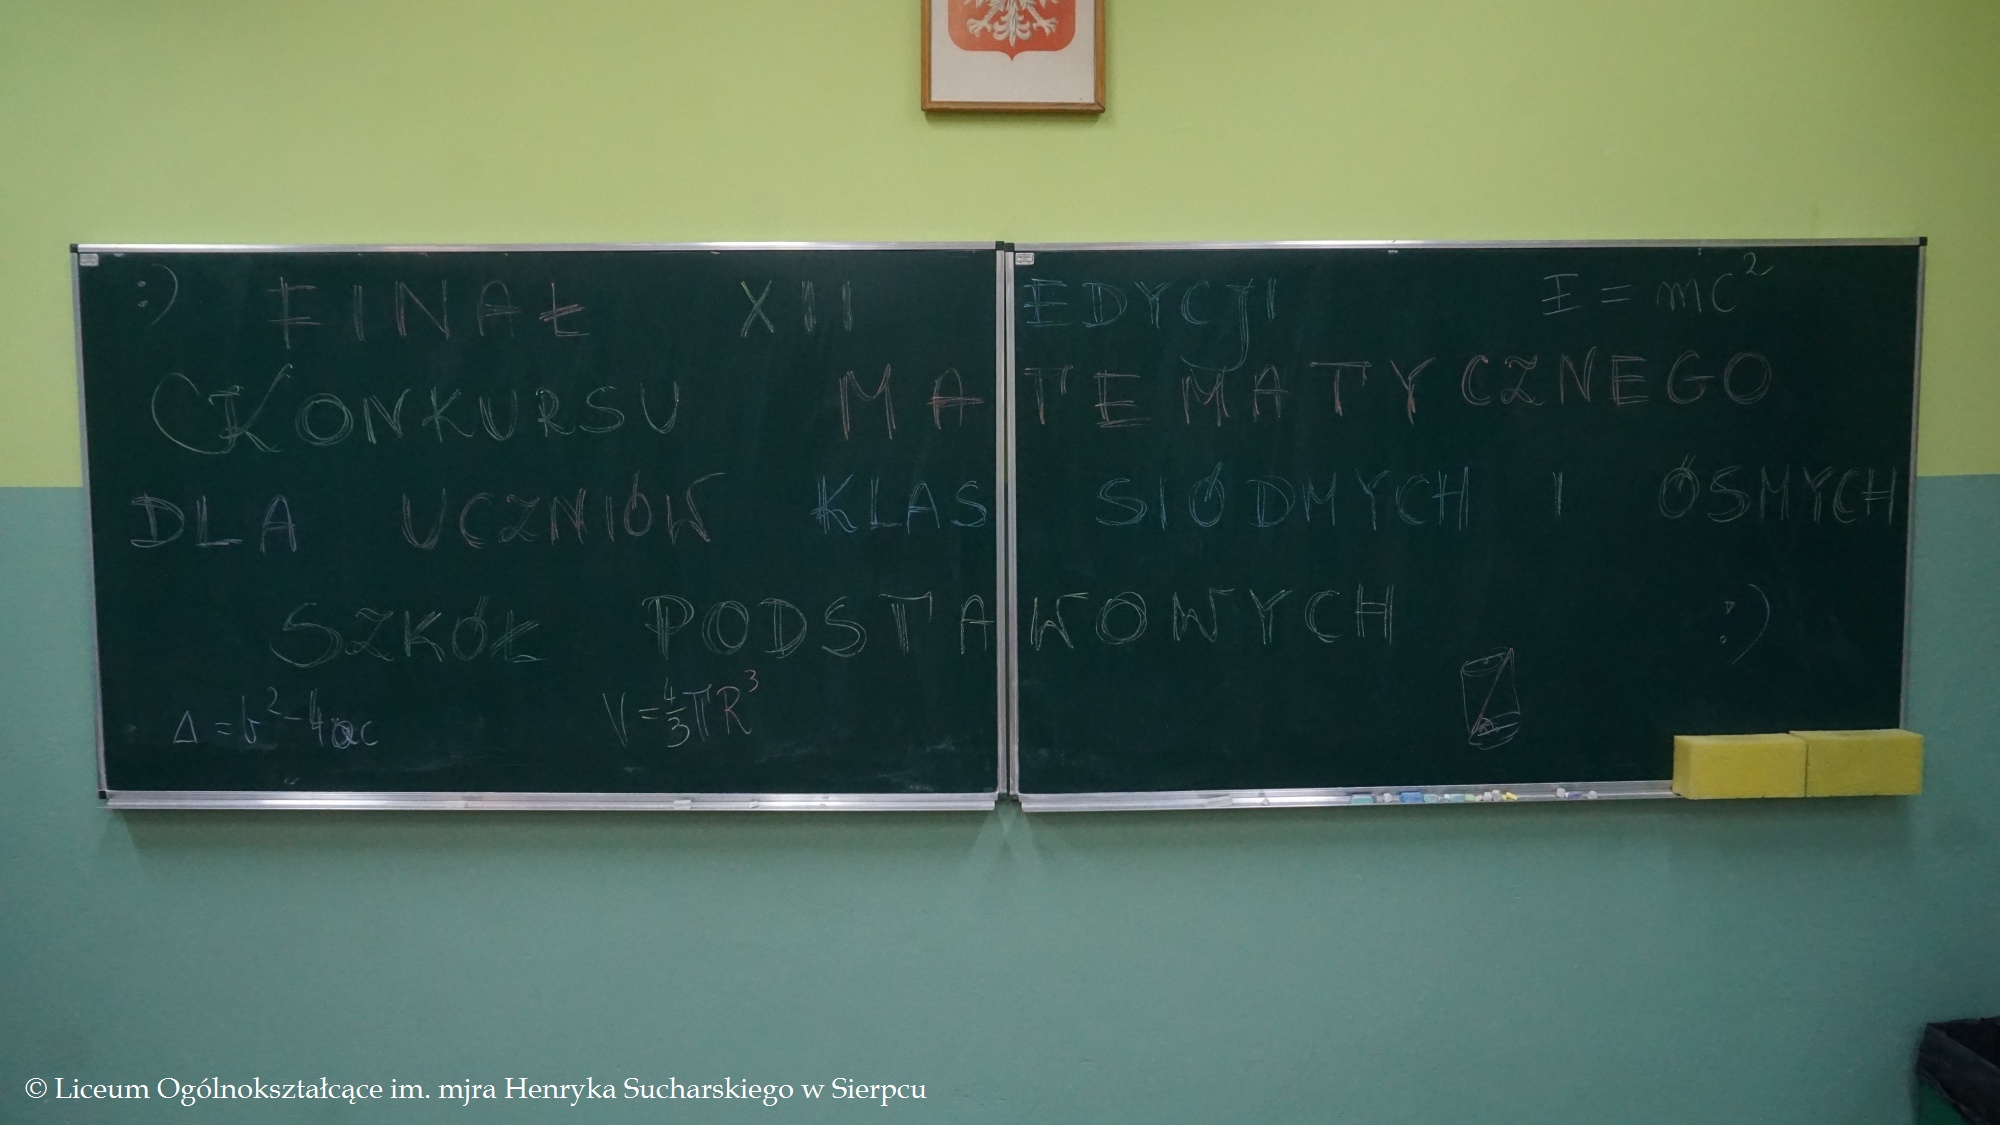 :) FINAŁ XII EDYCJI E = mc²
KONKURSU MATEMATYCZNEGO
DLA UCZNIÓW KLAS SIÓDMYCH I ÓSMYCH
SZKÓŁ PODSTAWOWYCH :)
Δ = b² - 4ac V = 4/3 πR³
© Liceum Ogólnokształcące im. mjra Henryka Sucharskiego w Sierpcu